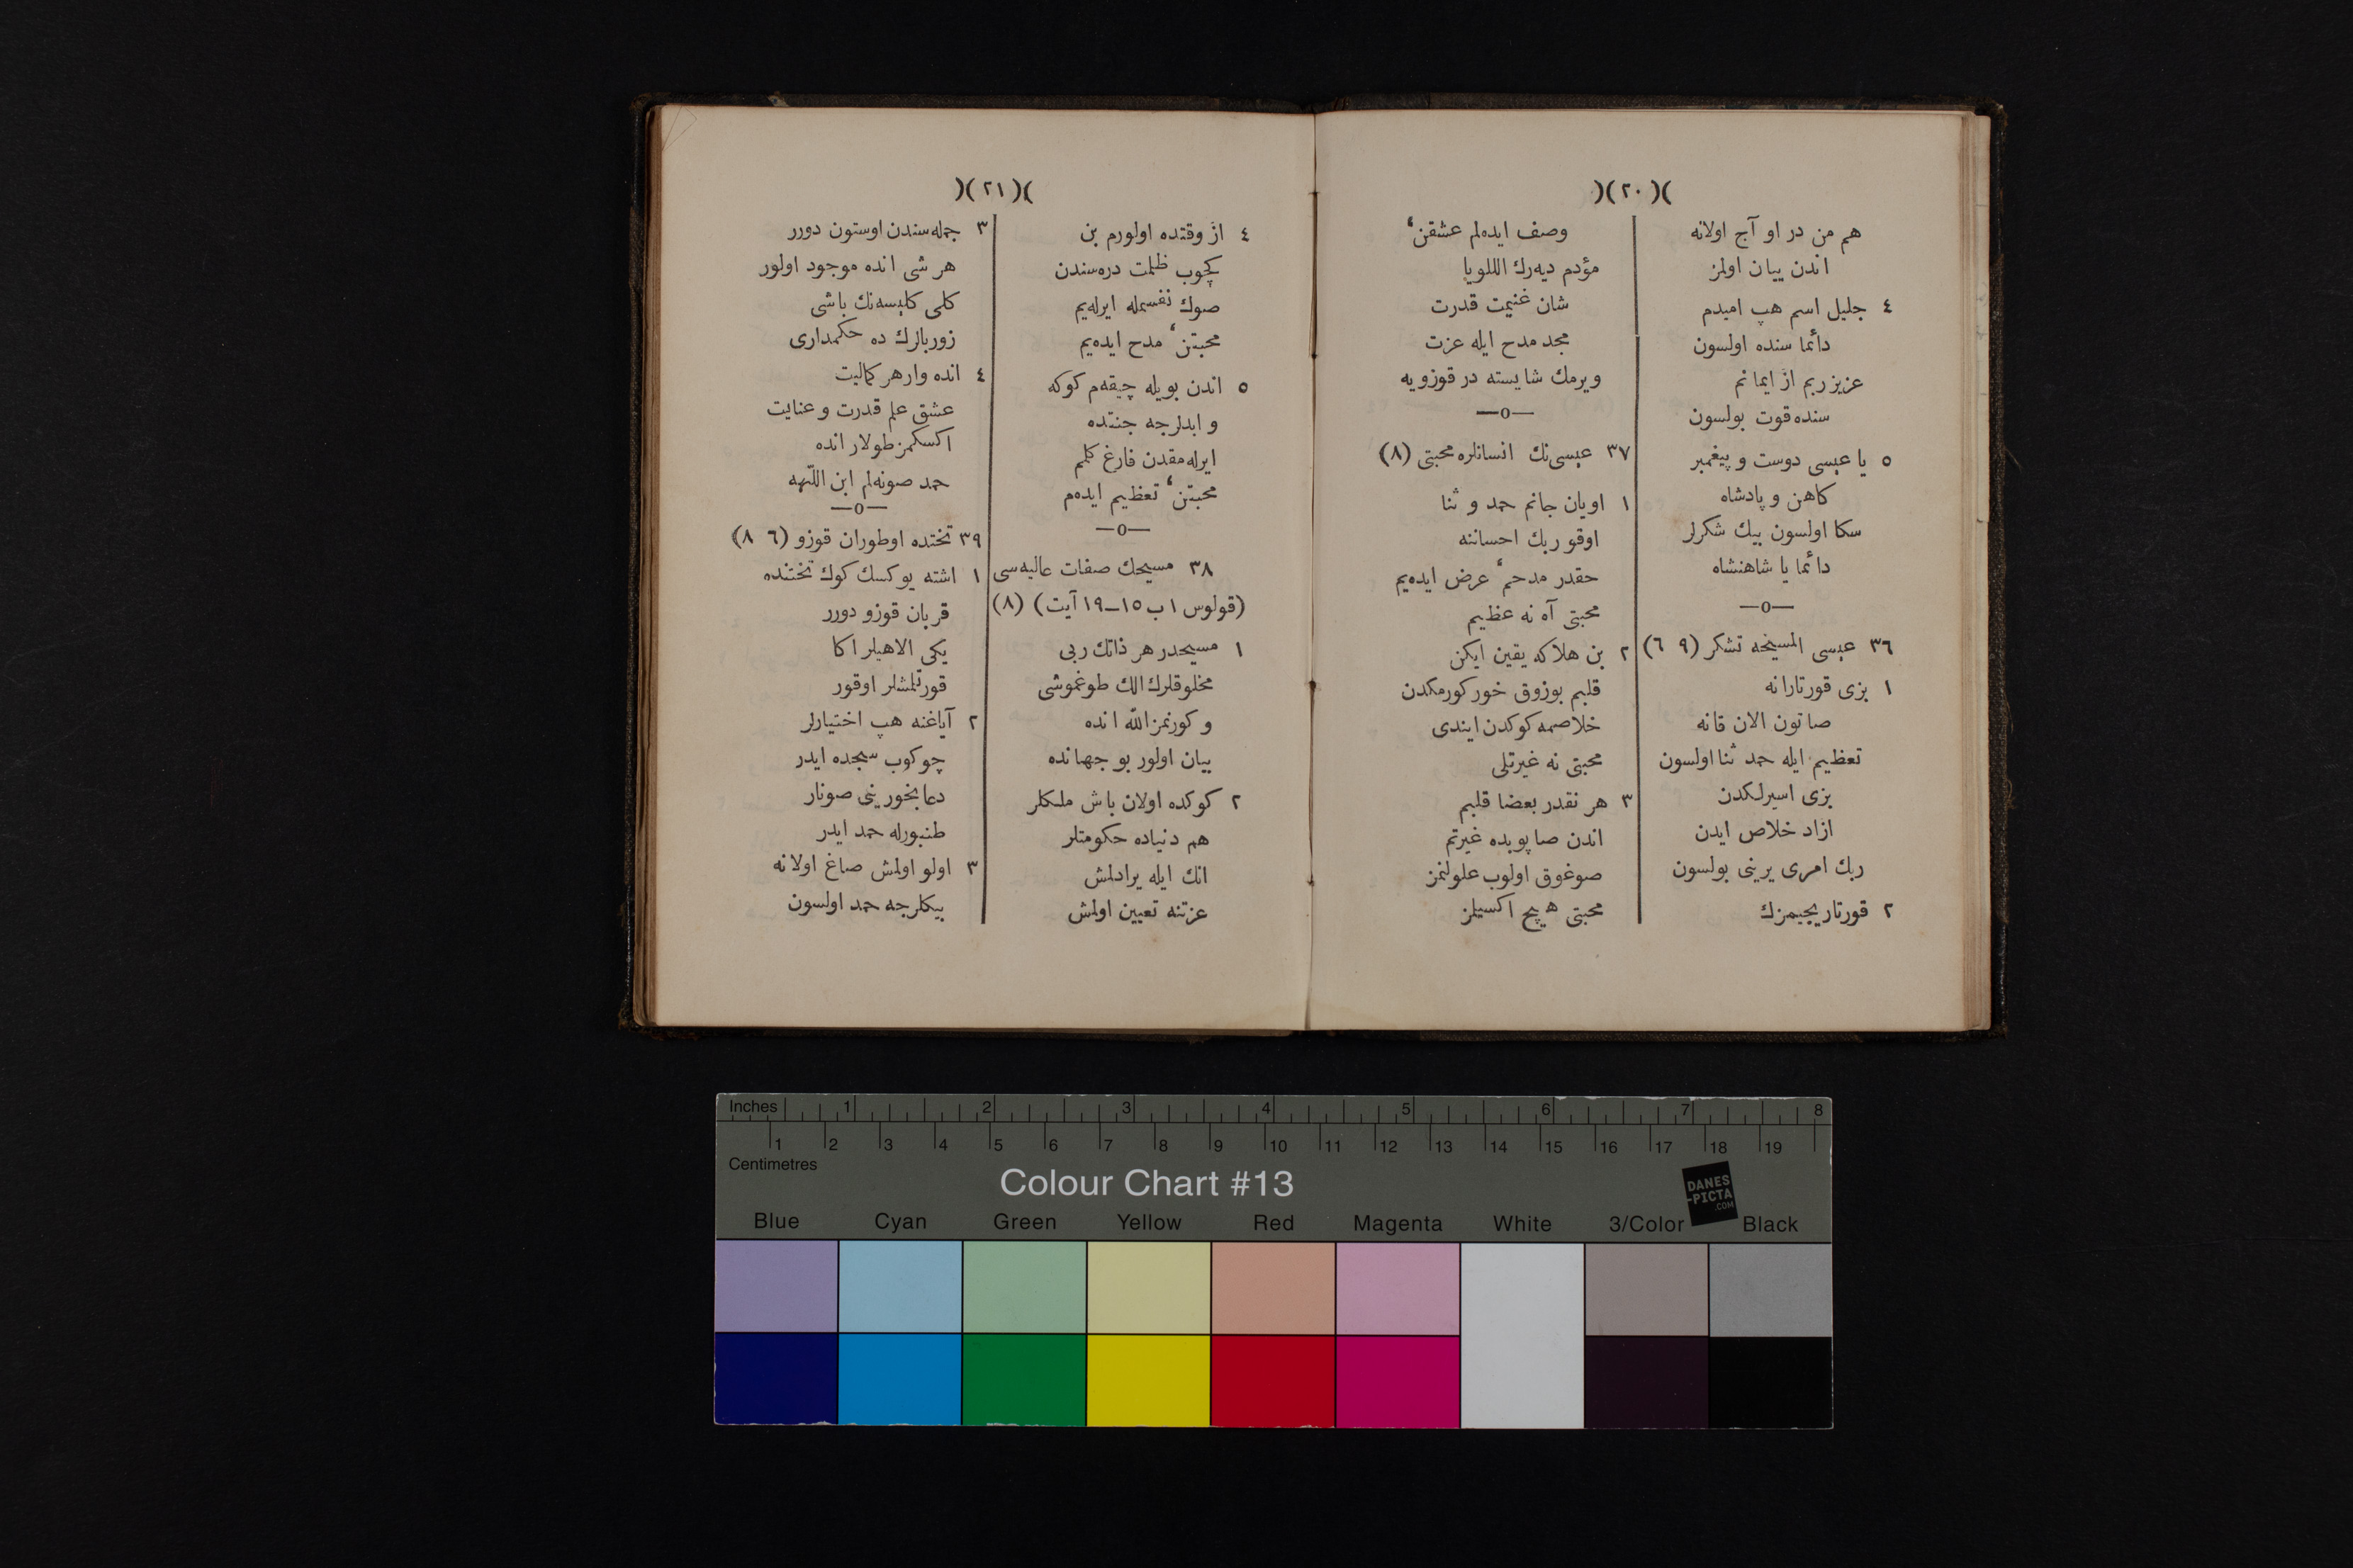 )(٢٠)(
هم من در او آج اولانه
اندن بيان اولمز
٤ جليل اسم هپ اميدم
دأئما سنده اولسون
عزيز ربم از ايمانم
سنده قوت بولسون
٥ يا عيسى دوست و پيغمبر
كاهن و پادشاه
سكا اولسون بيك شكرلر
دأئما يا شاهنشاه
—o—
٣٦ عيسى المسيحه تشكر (٩ ٦)
١ بزى قورتارانه
صاتون الان قانه
تعظيم ايله حمد ثنا اولسون
بزى اسيرلكدن
ازاد خلاص ايدن
ربك امرى يرينى بولسون
٢ قورتاريجيمزك
وصف ايده‌لم عشقنء
مؤدم ديه‌رك الللويا
شان غنيمت قدرت
مجد مدح ايله عزت
ويرمك شايسته در قوزويه
—o—
٣٧ عيسى‌نك انسانلره محبتى (٨)
١ اويان جانم حمد و ثنا
اوقو ربك احساننه
حقدر مدحمء عرض ايده‌يم
محبتى آه نه عظيم
٢ بن هلاكه يقين ايكن
قلبم بوزوق خور كورمكدن
خلاصمه كوكدن ايندى
محبتى نه غيرتلى
٣ هر نقدر بعضا قلبم
اندن صاپويده غيرتم
صوغوق اولوب علولنمز
محبتى هيچ اكسيلمز
)(٢١)(
٤ از وقتده اولورم بن
كچوب ظلمت دره‌سندن
صوك نفسمله ايرله‌يم
محبتنء مدح ايده‌يم
٥ اندن بويله چيقه‌م كوكه
و ابدلرجه جنتده
ايرله‌مقدن فارغ كلمم
محبتنء تعظيم ايده‌م
—o—
٣٨ مسيحك صفات عاليه‌سى
(قولوس ١ ب ١٥–١٩ آيت) (٨)
١ مسيحدر هر ذاتك ربى
مخلوقلرك الك طوغموشى
و كورنمز الله انده
بيان اولور بو جهانده
٢ كوكده اولان باش ملكلر
هم دنياده حكومتلر
انك ايله يرادلمش
عزتنه تعيين اولمش
٣ جمله‌سندن اوستون دورر
هر شى انده موجود اولور
كلى كليسه‌نك باشى
زوربالرك ده حكمدارى
٤ انده وار هر كماليت
عشق علم قدرت و عنايت
اكسكمز طولار انده
حمد صونه‌لم ابن اللّهه
—o—
٣٩ تختده اوطوران قوزو (٦ ٨)
١ اشته يوكسك كوك تختنده
قربان قوزو دورر
يكى الاهيلر اكا
قورتلمشلر اوقور
٢ آياغنه هپ اختيارلر
چوكوب سجده ايدر
دعا بخورينى صونار
طنبورله حمد ايدر
٣ اولو اولمش صاغ اولانه
بيكلرجه حمد اولسون
Inches 1 2 3 4 5 6 7 8
1 2 3 4 5 6 7 8 9 10 11 12 13 14 15 16 17 18 19
Centimetres
Colour Chart #13
DANES
-PICTA
.COM
Blue Cyan Green Yellow Red Magenta White 3/Color Black